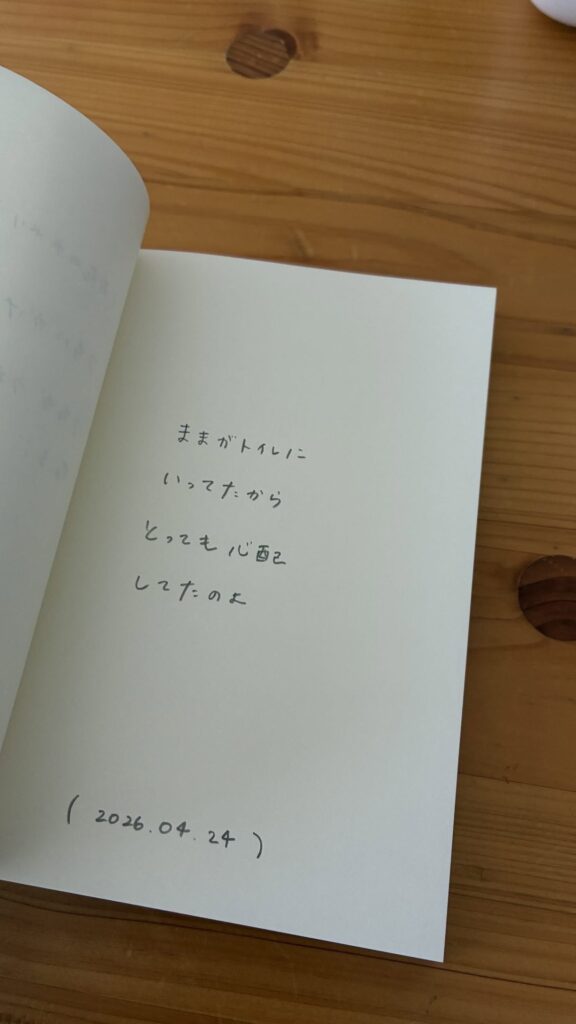 ままがトイレに
いってたから
とっても心配
してたのよ
(2026.04.24)